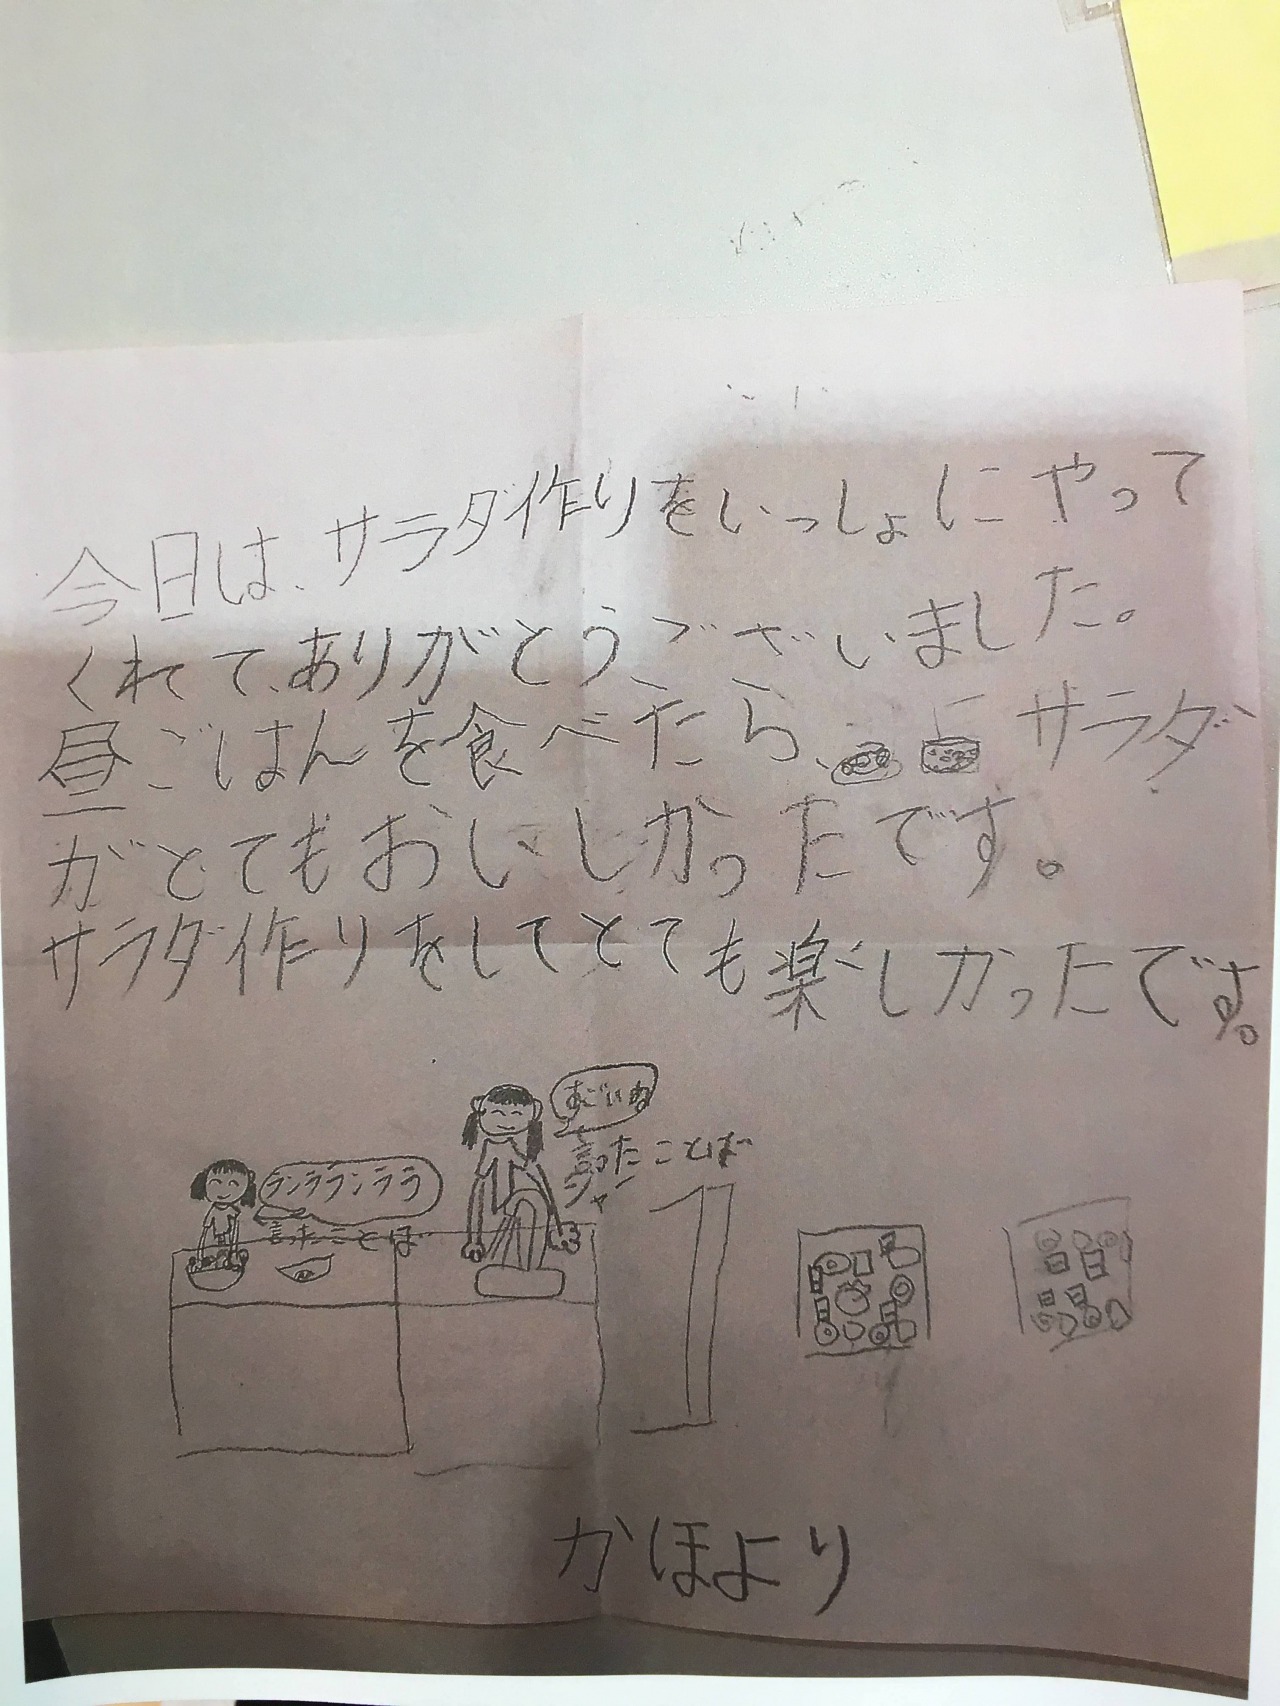 今日は、サラダ作りをいっしょにやって
くれて、ありがとうございました。
昼ごはんを食べたら、サラダ
がとてもおいしかったです。
サラダ作りをしてとても楽しかったです。
すごいね
言ったことば
ジャー
ランラランララ
言ったことば
かほより